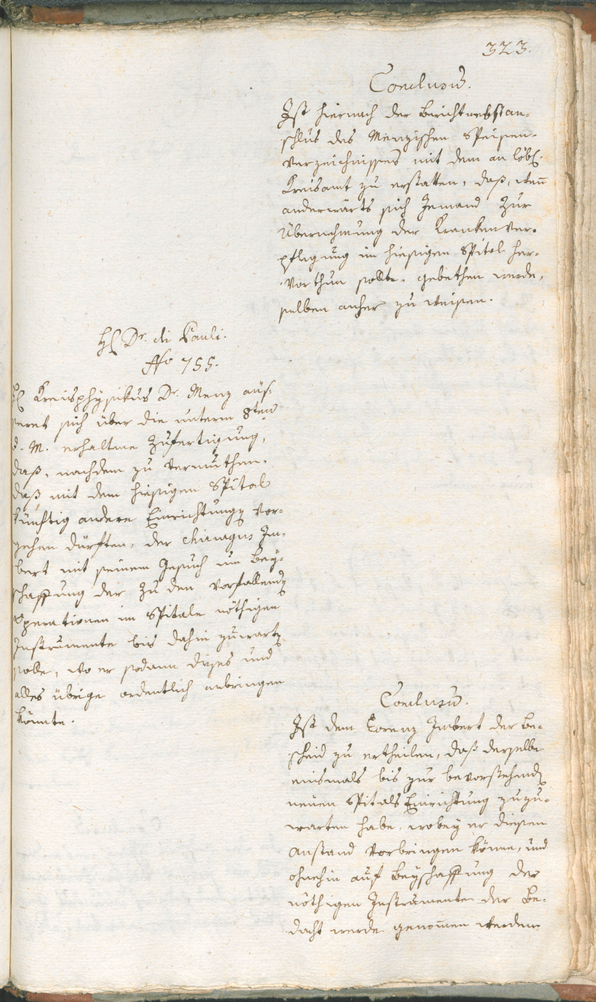 323.
Conclusum.
Ist hiernach der Bericht nebst An-
schluß des Menzischen Speisen-
Verzeichnisses mit dem an löbl.
Kreisamt zu erstatten, daß, wenn
anderwärts sich Jemand zur
Übernehmung der Krankenver-
pflegung im hiesigen Spital her-
vorthun sollte, gebethen werde,
selben anher zu weisen.
H. Dr. di Pauli.
No 755.
H. Kreisphysikus Dr. Menz äuß
eret sich über die unterm 8ten
d. M. erhaltne Zufertigung,
daß, nachdem zu vermuthen,
daß mit dem hiesigen Spital
künftig andere Einrichtungen vor-
gehen dürften, der chirurgus Im-
bert mit seinem Gesuch um Bey-
schaffung der zu den vorfallenden
Operationen im Spitale nöthigen
Instrumente bis dahin zuwarten
solle, wo er sodann dieses und
alles übrige ordentlich anbringen
könnte.
Conclusum.
Ist dem Lorenz Imbert der Be-
scheid zu ertheilen, daß derselbe
einsmals bis zur bevorstehenden
neuen Spitals Einrichtung zuzu-
warten habe, wobey er diesen
Anstand vorbringen könne, und
ohnehin auf Beyschaffung der
nöthigen Instrumente der Be-
dacht werde genommen werden